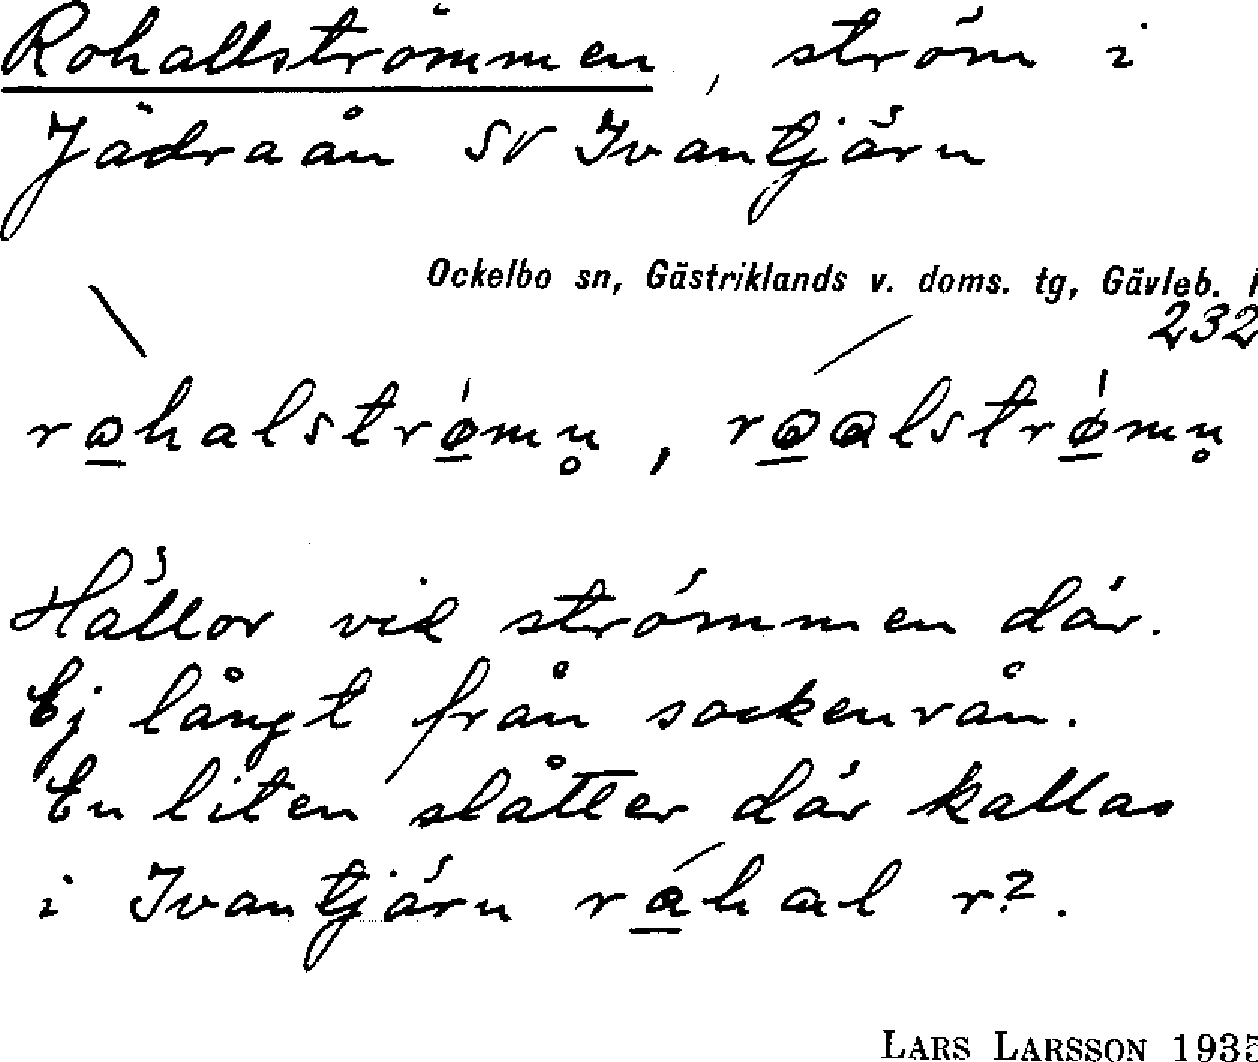 Rohallströmmen, ström i
Jädraån SV Ivantjärn
Ockelbo sn, Gästriklands v. doms. tg, Gävleb. l
232
rohalstrømn̥, roalstrømn̥
Hällor vid strömmen där.
Ej långt från sockenrån.
En liten slåtter där kallas
i Ivantjärn råhal r?.
LARS LARSSON 1935